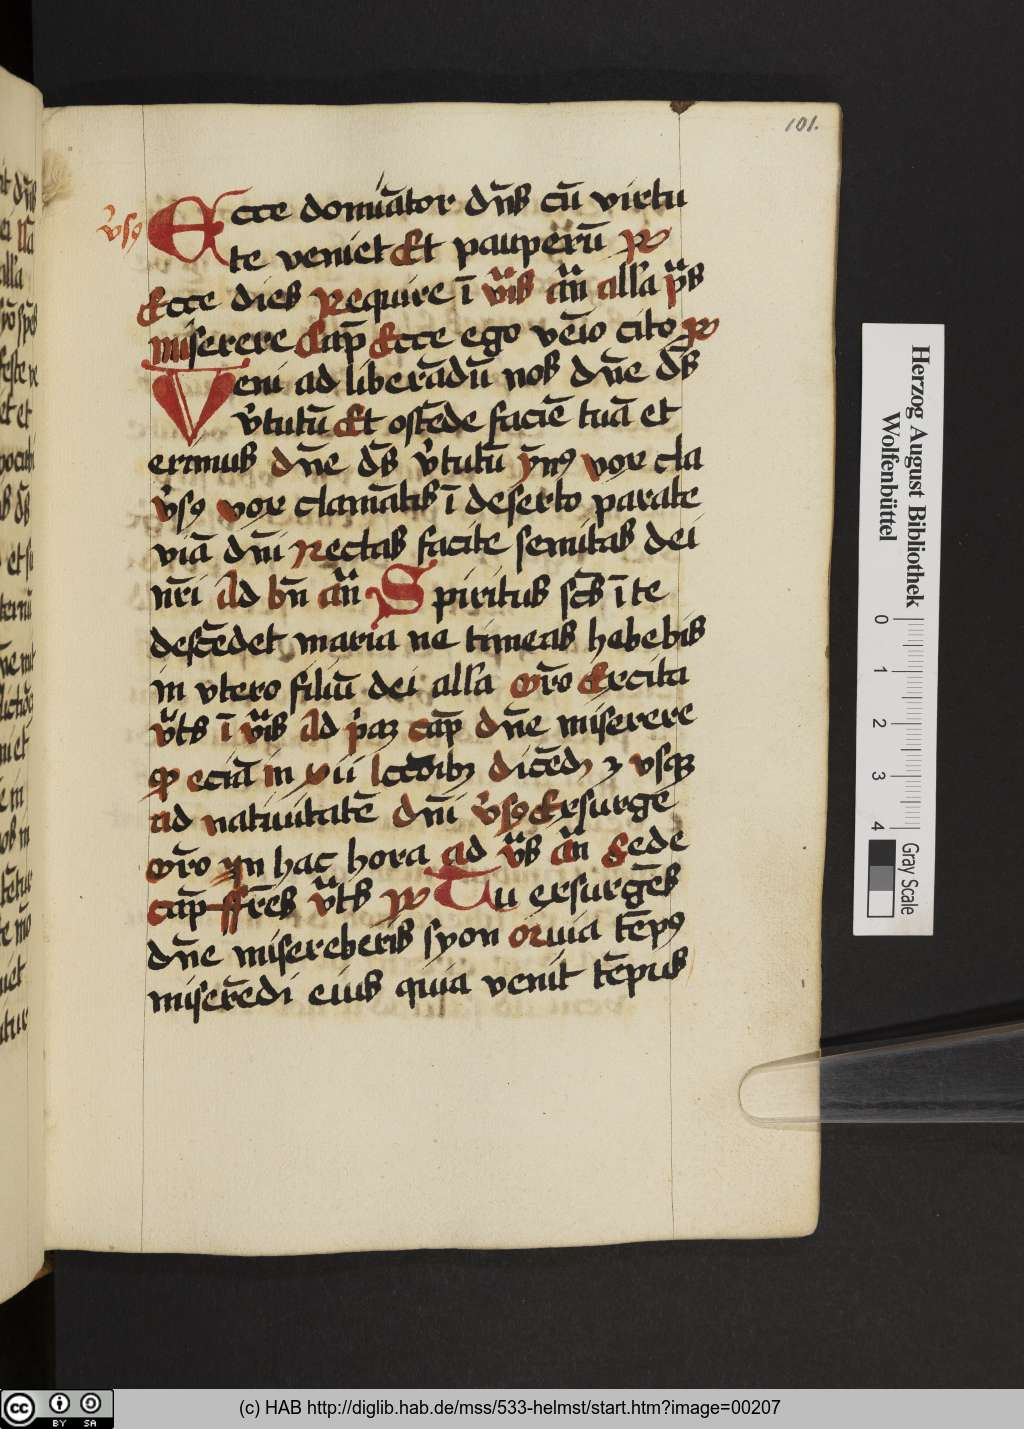 101.
v̾sꝯ Ecce domĩator dñs cũ virtu
te veniet Et pauperũ
Ecce dies Require ĩ añ alla ps
miserere Cap̃ Ecce ego vẽio cito
Veni ad liberãdũ nos dñe ds̃
v̾tutũ Et ostẽde faciẽ tuã et
erimus dñe ds̃ v̾tutũ ym̃ꝯ vox cla
v̾sꝯ vox clamãtis ĩ deserto parate
viã dñi Rectas facite semitas dei
nr̃i Ad bñ añ Spiritus sc̃s ĩ te
descẽdet maria ne timeas hebebis
in vtero filiũ dei alla or̃o Excita
ĩ Ad cap̃ dñe miserere
eciã in xii lcc̃oibꝫ dicẽdꝫ ꝛ vsqꝫ
ad natiuitatẽ dñi v̾sꝯ Exsurge
or̃o In hac hora ad añ Sede
cap̃ ffr̃es Tu exsurgẽs
dñe misereberis syon Quia tẽpꝯ
miserẽdi eius quia venit tẽpus
Herzog August Bibliothek
Wolfenbüttel
0 1 2 3 4
Gray Scale
BY SA
(c) HAB http://diglib.hab.de/mss/533-helmst/start.htm?image=00207